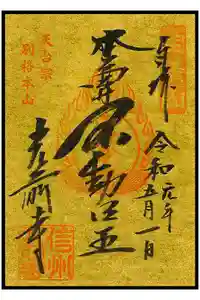 奉拝
令和元年
五月一日
本尊 不動明王
天台宗
別格本山
光前寺
信州